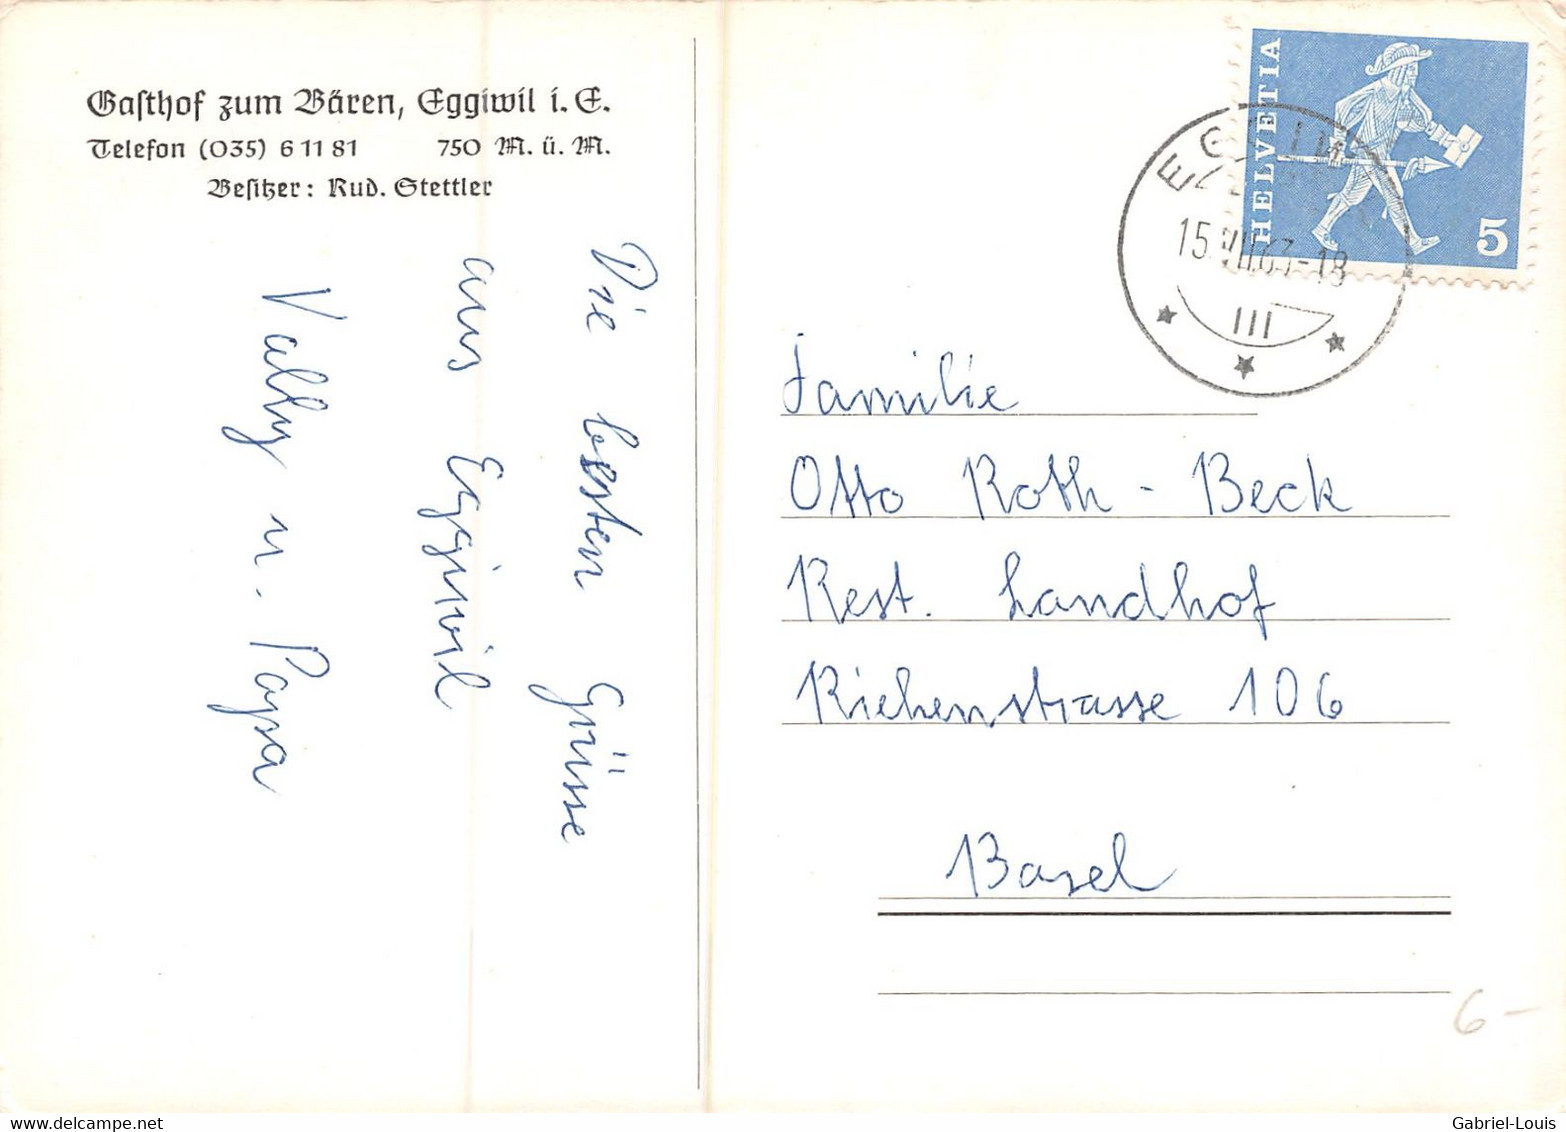 Gasthof zum Bären, Eggiwil i. E.
Telefon (035) 6 11 81 750 M. ü. M.
Besitzer: Rud. Stettler
Die besten Grüsse
aus Eggiwil
Vally u. Papa
HELVETIA
5
15. VII.63-18
III
Familie
Otto Roth - Beck
Rest. Landhof
Riehenstrasse 106
Basel
6 -
Gabriel-Louis